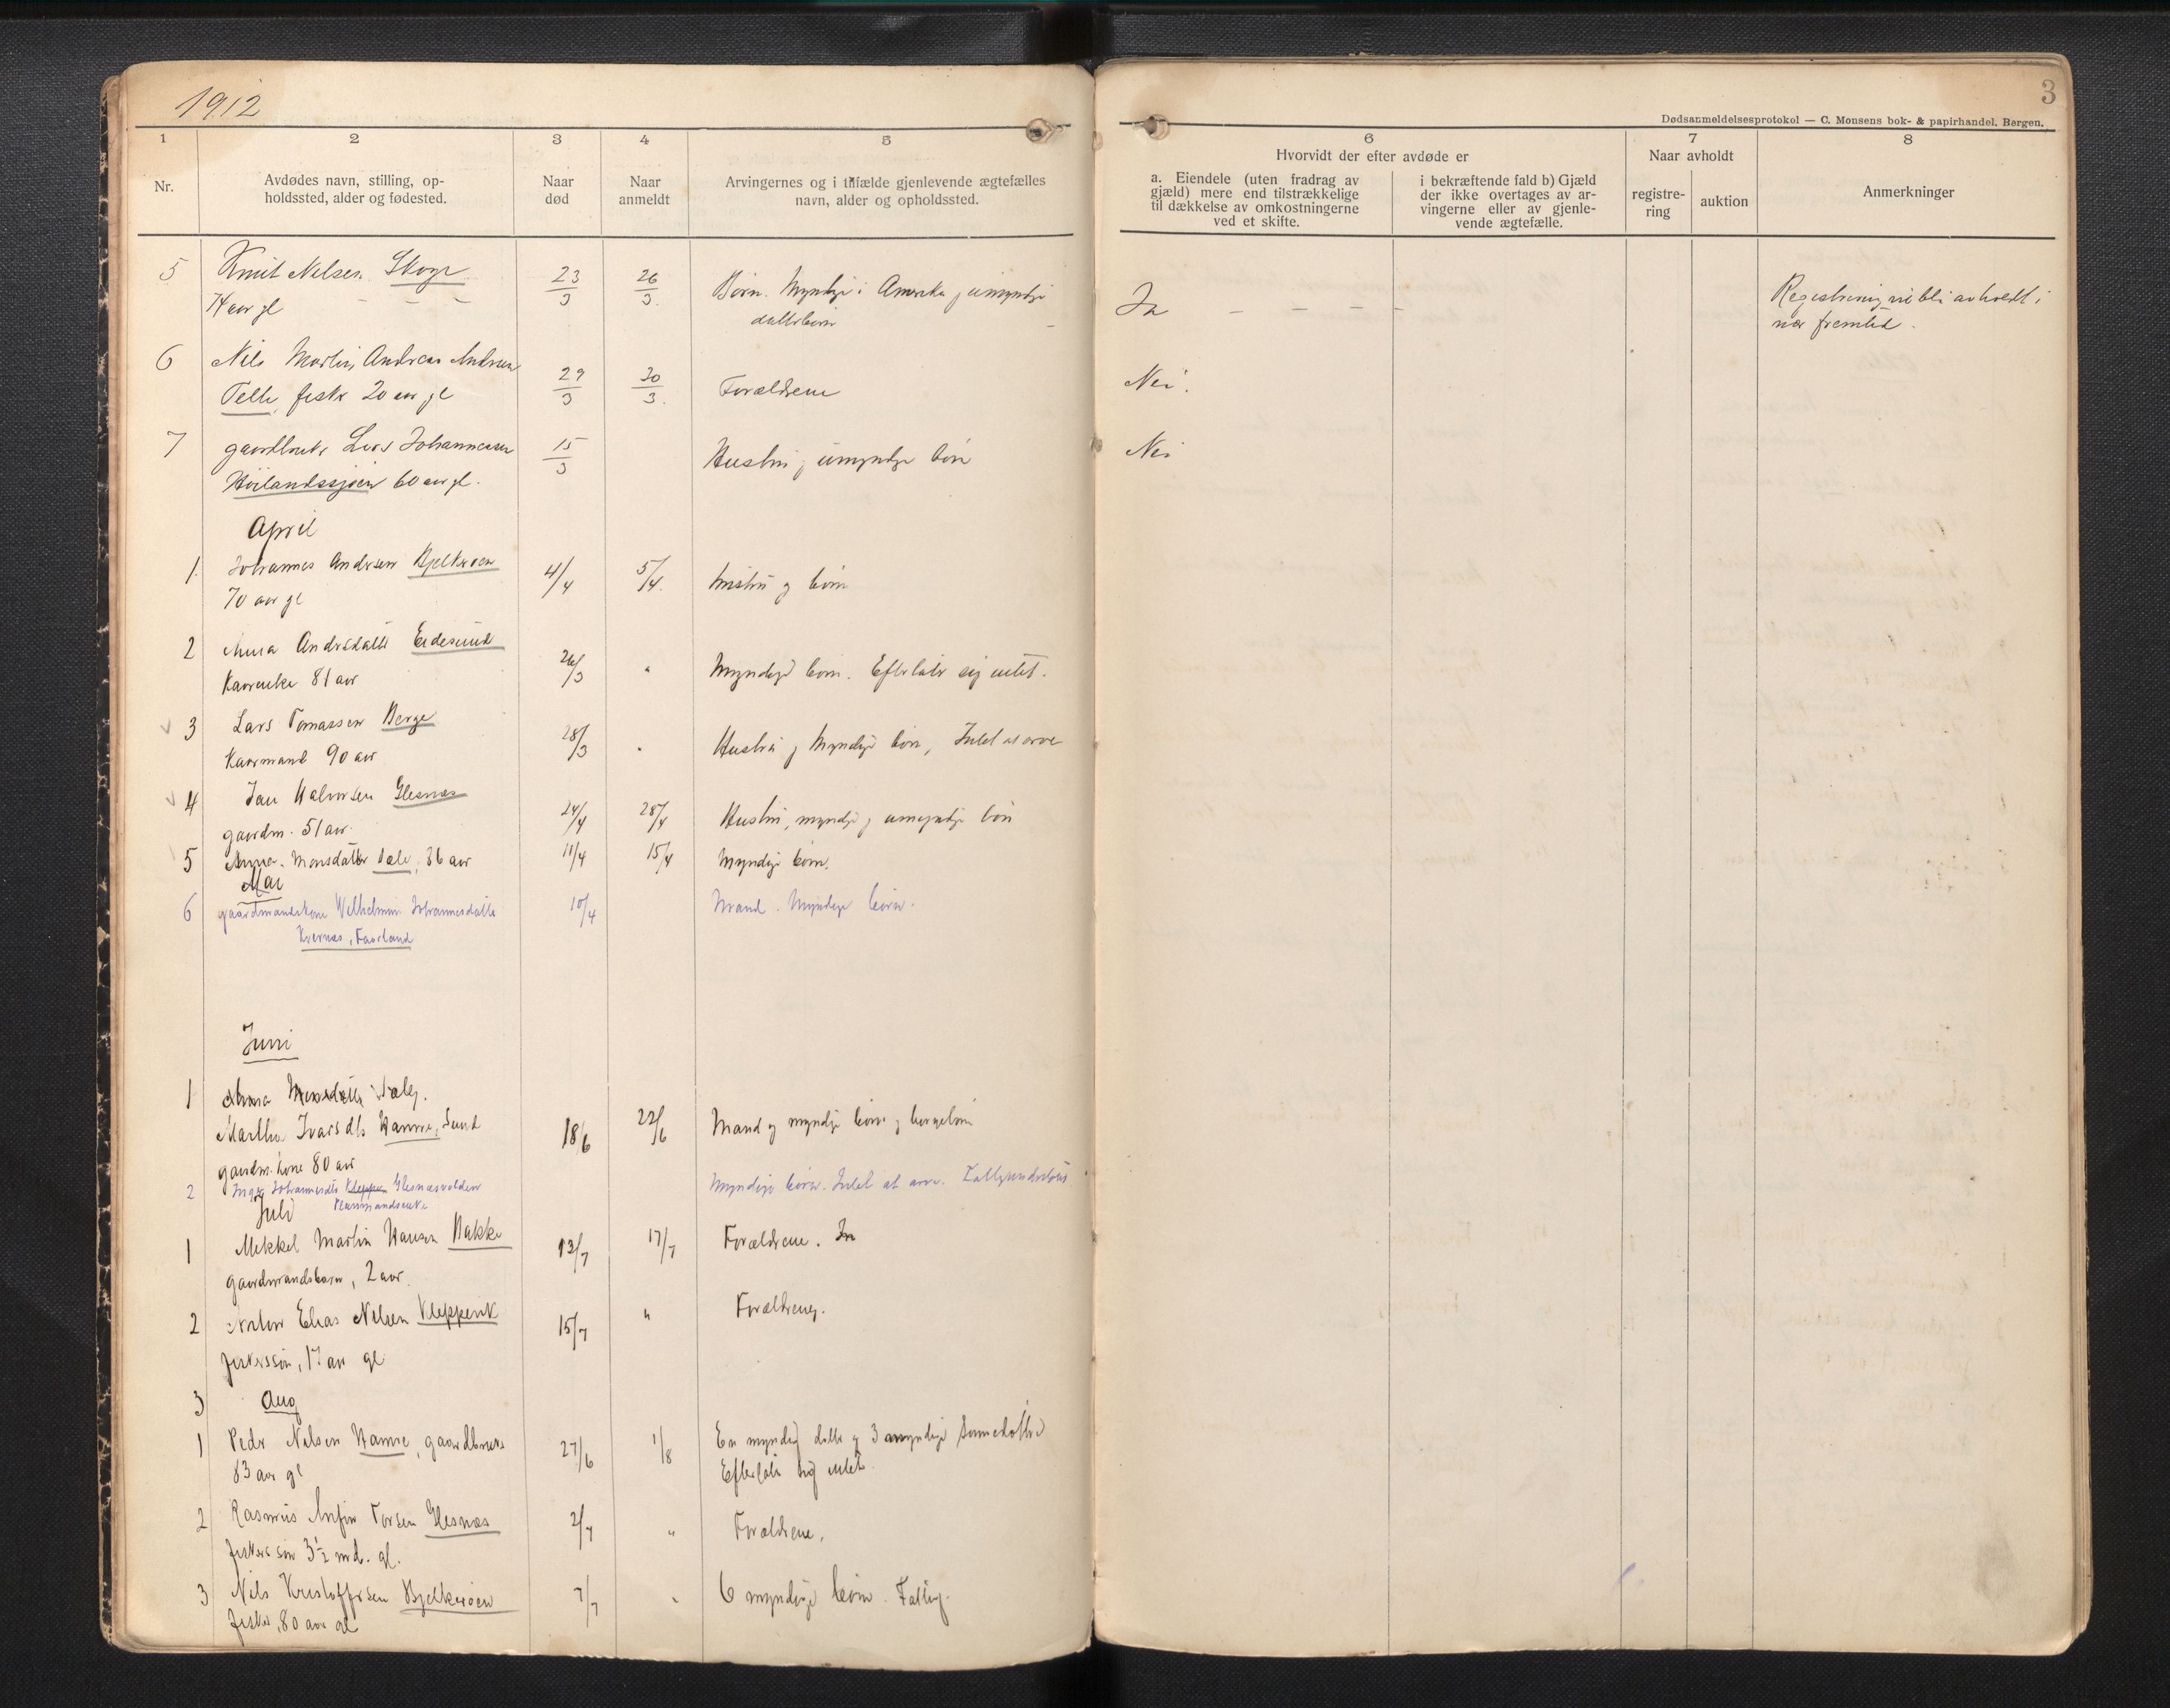 1912
3
Dødsanmeldelsesprotokol — C. Monsens bok- & papirhandel, Bergen.
1 2 3 4 5 6 7 8
Nr.
Avdødes navn, stilling, op-
holdssted, alder og fødested.
Naar
død
Naar
anmeldt
Arvingernes og i tilfælde gjenlevende ægtefælles
navn, alder og opholdssted.
Hvorvidt der efter avdøde er
a. Eiendele (uten fradrag av
gjæld) mere end tilstrækkelige
til dækkelse av omkostningerne
ved et skifte.
i bekræftende fald b) Gjæld
der ikke overtages av ar-
vingerne eller av gjenle-
vende ægtefælle.
Naar avholdt
registre-
ring
auktion
Anmerkninger
5 Knut Nelsen Skoge 23/3 26/3 Børn. Myndige i Amerika, umyndige
74 aar gl datterbørn
Ja
Registrering vil bli avholdt i
nær fremtid.
6 Nils Martin Andreas Andersen
Telle, fisker 20 aar gl 29/3 30/3 Forældrene Nei.
7 gaardbruker Lars Johannessen 15/3 Hustru, umyndige børn Nei
Høilandssjøen 60 aar gl.
April
1. Johannes Andersen Bjelkerøen 4/4 5/4 hustru og børn
70 aar gl
2 Anna Andersdatter Eidesund 26/3 " Myndige børn. Efterlater sig intet.
Kaarenke 81 aar
3 Lars Tomassen Berge 28/3 " Hustru og myndige børn, Intet at arve
Kaarmand 90 aar
4 Jan Halvorsen Glesnæs 24/4 28/4 Hustru, myndige og umyndige børn
gaardm. 51 aar.
5 Anna Monsdatter Vale, 86 aar 11/4 15/4 Myndige børn.
Mai
6 gaardmandskone Wilhelmine Johannesdatter 10/4 Mand. Myndige børn.
Kvernæs, Faarland
Juni
1 Anna Monsdatter
Martha Ivarsdtr Hamre, Sund 18/6 22/6 Mand og myndige børn og
gaardm.kone 80 aar
2 Inger Johannesdtr Kleppen Glesnæsvolden Myndige børn. Intet at arve.
Juli
1 Mikkel Martin Hansen Bakke 13/7 17/7 Forældrene.
gaardmandsbarn, 2 aar.
2 Anton Elias Nelsen Kleppevik 15/7 " Forældrene.
fiskerssøn, 17 aar gl
3 Aug
1 Peder Nelsen Hamre, gaardbruker 27/6 1/8 En myndig datter og 3 myndige sønnedøtre
83 aar gl Efterlater sig intet.
2 Rasmus Anfin Torsen Glesnæs 2/7 " Forældrene.
fiskers søn 3½ md. gl.
3 Nils Kristoffersen Bjelkerøen 7/7 " 6 myndige børn. Fattig.
fisker, 80 aar gl